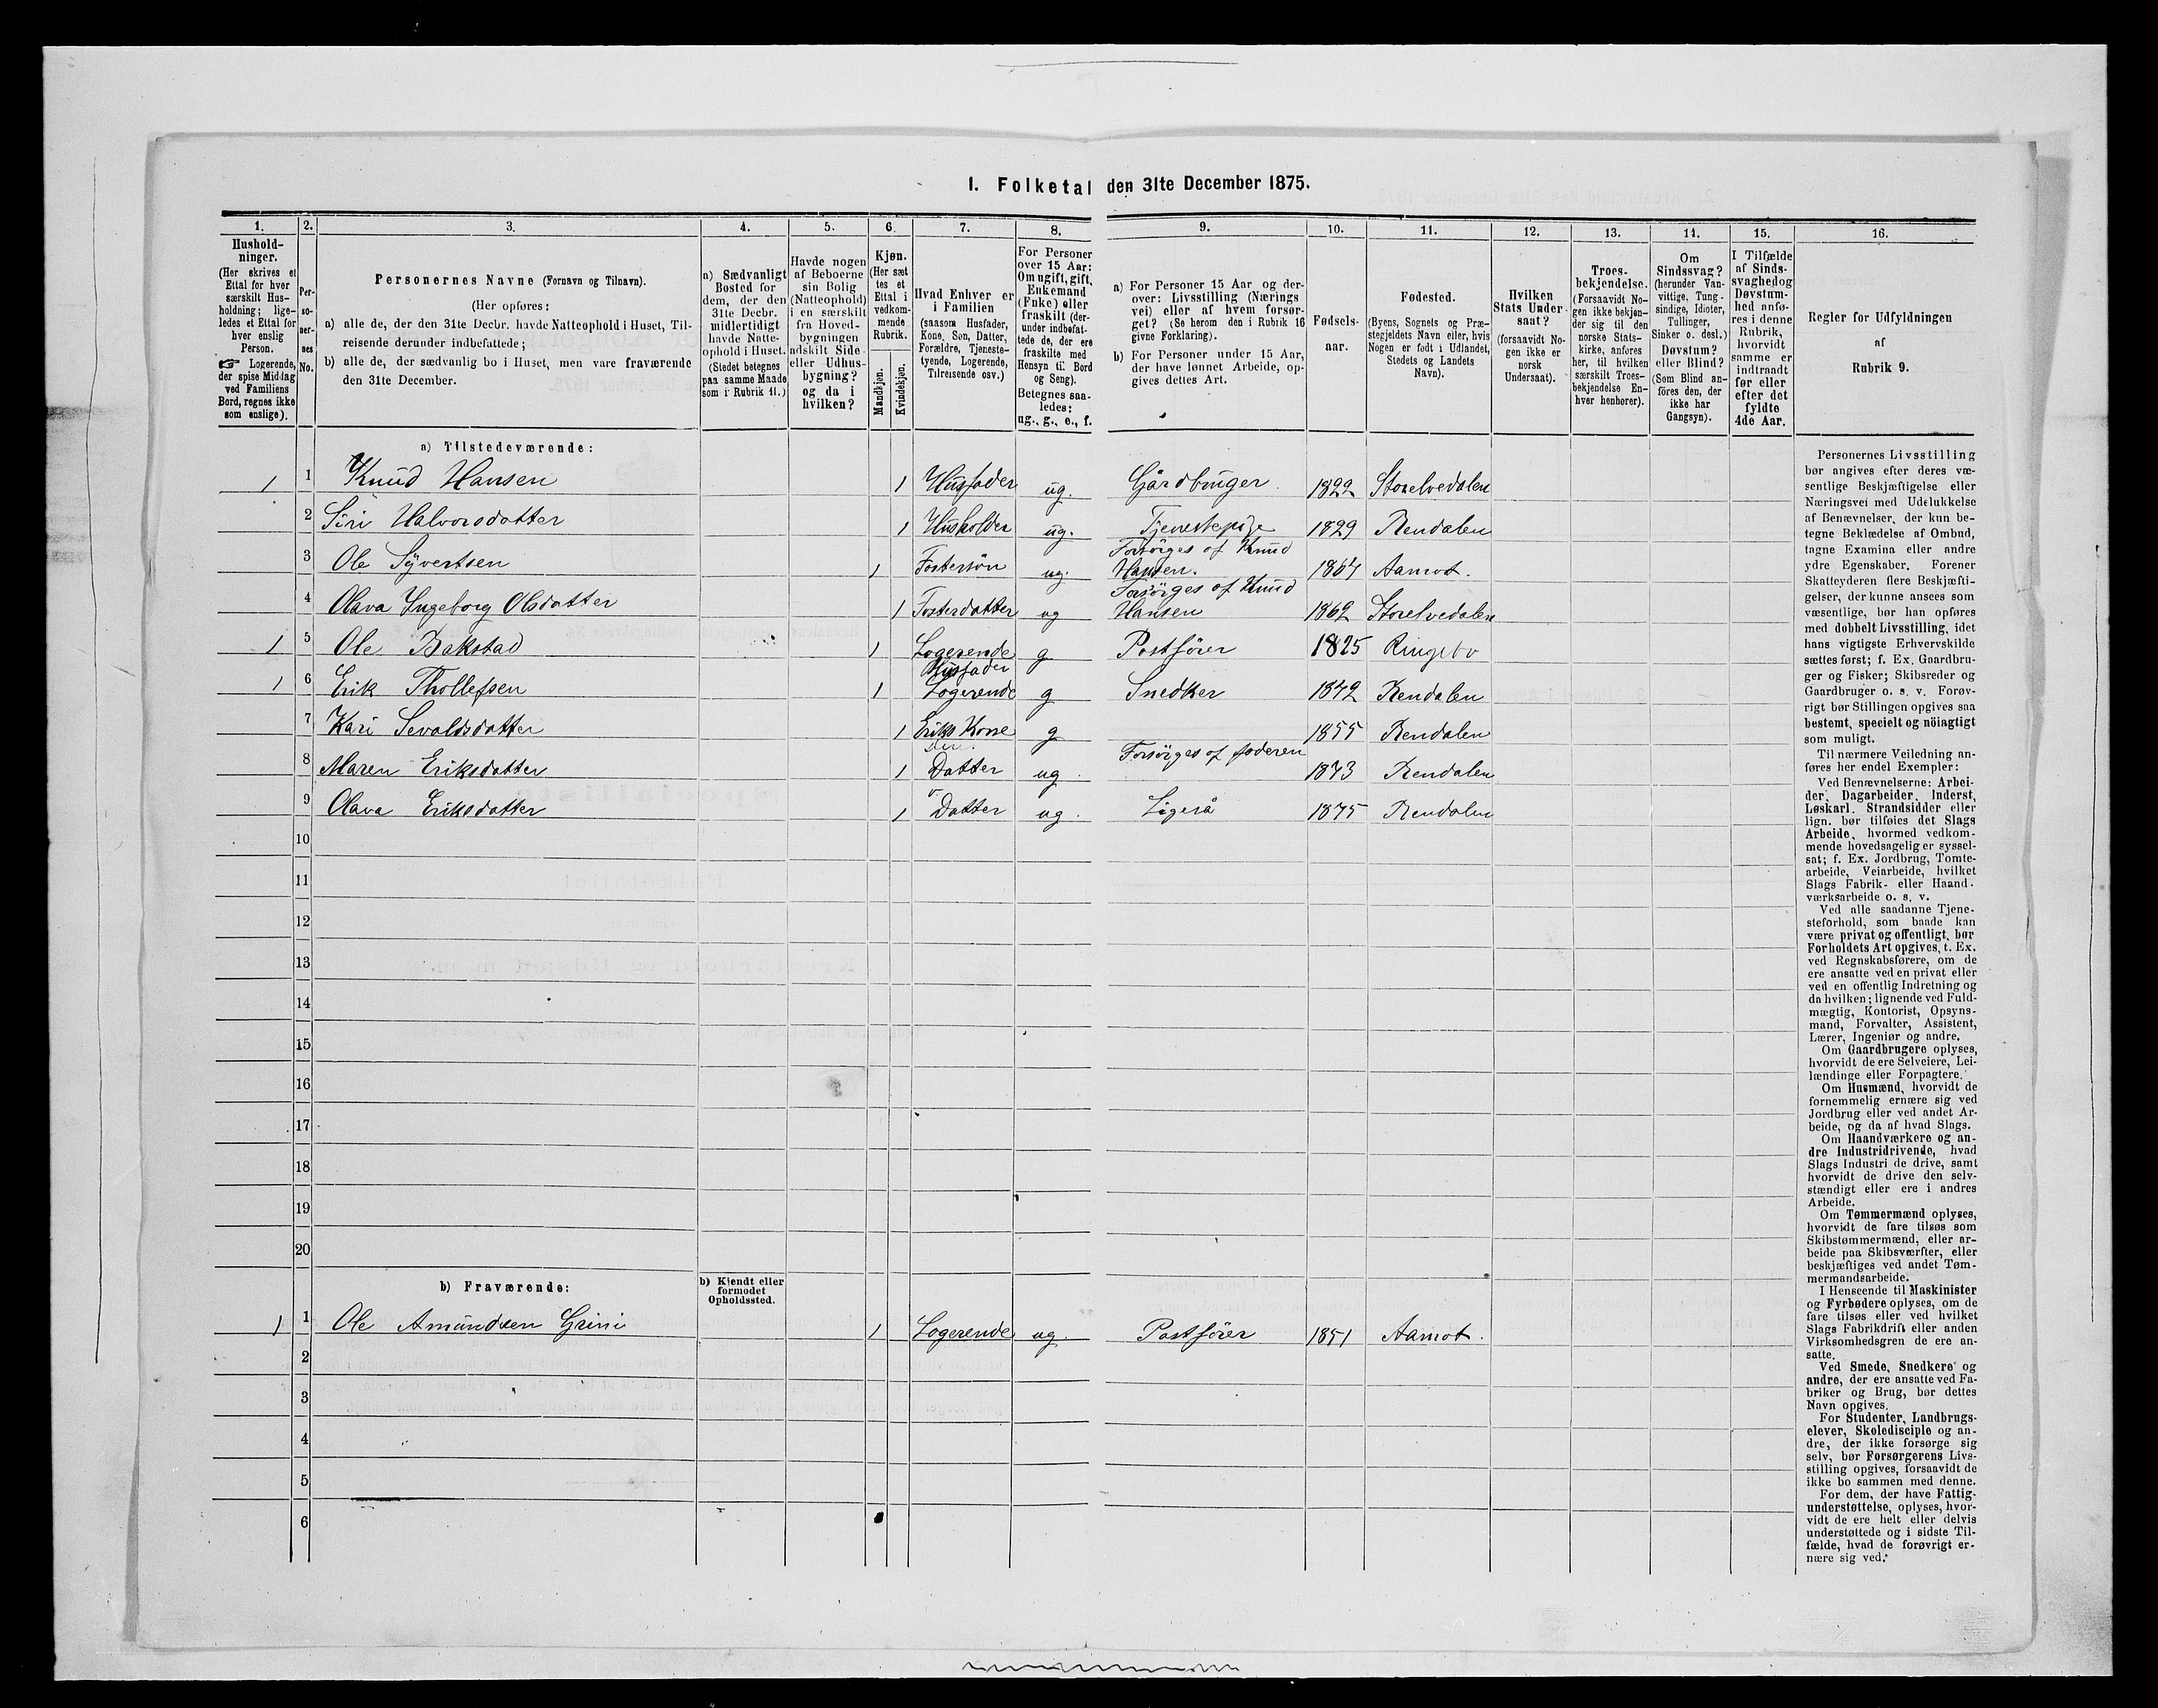 I. Folketal den 31te December 1875.
1.
Hushold-
ninger.
(Her skrives et
Ettal for hver
særskilt Hus-
holdning; lige-
ledes et Ettal for
hver enslig
Person.
☞ Logerende,
der spise Middag
ved Familiens
Bord, regnes ikke
som enslige).
2.
Per-
so-
ner-
nes
No.
3.
Personernes Navne (Fornavn og Tilnavn).
(Her opføres:
a) alle de, der den 31te Decbr. havde Natteophold i Huset, Til-
reisende derunder indbefattede;
b) alle de, der sædvanlig bo i Huset, men vare fraværende
den 31te December.
4.
a) Sædvanligt
Bosted for
dem, der den
31te Decbr.
midlertidigt
havde Natte-
ophold i Huset.
(Stedet betegnes
paa samme Maade
som i Rubrik 11.)
5.
Havde nogen
af Beboerne
sin Bolig
(Natteophold)
i en særskilt
fra Hoved-
bygningen
adskilt Side-
eller Udhus-
bygning?
og da i
hvilken?
6.
Kjøn.
(Her sæt
tes et
Ettal i
vedkom-
mende
Rubrik.
Mandkjøn.
Kvindekjøn.
7.
Hvad Enhver er
i Familien
(saasom Husfader,
Kone, Søn, Datter,
Forældre, Tjeneste-
tyende, Logerende,
Tilreisende osv.)
8.
For Personer
over 15 Aar:
Om ugift, gift,
Enkemand
(Enke) eller
fraskilt (der-
under indbefat-
tede de, der ere
fraskilte med
Hensyn til Bord
og Seng).
Betegnes saa-
ledes:
ug., g., e., f.
9.
a) For Personer 15 Aar og der-
over: Livsstilling (Nærings
vei) eller af hvem forsør-
get? (Se herom den i Rubrik 16
givne Forklaring).
b) For Personer under 15 Aar,
der have lønnet Arbeide, op-
gives dettes Art.
10.
Fødsels-
aar.
11.
Fødested.
(Byens, Sognets og Præ-
stegjeldets Navn eller, hvis
Nogen er født i Udlandet,
Stedets og Landets
Navn).
12.
Hvilken
Stats Under-
saat?
(forsaavidt No-
gen ikke er
norsk
Undersaat).
13.
Troes-
bekjendelse.
(Forsaavidt No-
gen ikke bekjen-
der sig til den
norske Stats-
kirke, anføres
her, til hvilken
særskilt Troes-
bekjendelse En-
hver henhører).
14.
Om
Sindssvag?
(herunder Van-
vittige, Tung-
sindige, Idioter,
Tullinger,
Sinker o. desl.)
Døvstum?
eller Blind?
(Som Blind an-
føres den, der
ikke har
Gangsyn).
15.
I Tilfælde
af Sinds-
svaghed og
Døvstum-
hed anfø-
res i denne
Rubrik,
hvorvidt
samme er
indtraadt
før eller
efter det
fyldte
4de Aar.
16.
Regler for Udfyldningen
af
Rubrik 9.
a) Tilstedeværende:
1 1 Knud Hansen 1 Husfader ug. Gårdbruger 1822 Storelvedalen
2 Siri Halvorsdatter 1 Husholder ug. Tjenestepige 1829 Rendalen
3 Ole Syvertsen 1 Fostersön ug. Forsörges of Knud
Hansen. 1864 Aamot.
4 Olava Ingeborg Olsdatter 1 Fosterdatter ug Forsörges of Knud
Hansen 1862 Storelvedalen
1 5 Ole Bakstad 1 Logerende g Postförer 1825 Ringebo
1 6 Erik Thollefsen 1 Husfader
Logerende g Snedker 1842 Rendalen
7 Kari Sevaldsdatter 1 Eriks Kone g 1855 Rendalen
8 Maren Eriksdatter 1 Datter ug Forsörges of faderen 1873 Rendalen
9 Olava Eriksdatter 1 Datter ug. Ligeså 1875 Rendalen
10
11
12
13
14
15
16
17
18
19
20
b) Fraværende:
b) Kjendt eller
formodet
Opholdssted.
1 1 Ole Amundsen Grini 1 Logerende ug. Postförer 1851 Aamot.
2
3
4
5
6
Personernes Livsstilling
bør angives efter deres væ-
sentlige Beskjæftigelse eller
Næringsvei med Udelukkelse
af Benævnelser, der kun be-
tegne Beklædelse af Ombud,
tagne Examina eller andre
ydre Egenskaber. Forener
Skatteyderen flere Beskjæfti-
gelser, der kunne ansees som
væsentlige, bør han opføres
med dobbelt Livsstilling, idet
hans vigtigste Erhvervskilde
sættes først; f. Ex. Gaardbru-
ger og Fisker; Skibsreder og
Gaardbruger o. s. v. Forøv-
rigt bør Stillingen opgives saa
bestemt, specielt og nöiagtigt
som muligt.
Til nærmere Veiledning an-
føres her endel Exempler:
Ved Benævnelserne: Arbei-
der, Dagarbeider, Inderst,
Løskarl, Strandsidder eller
lign. bør tilføies det Slags
Arbeide, hvormed vedkom-
mende hovedsagelig er syssel-
sat; f. Ex. Jordbrug, Tomte-
arbeide, Veiarbeide, hvilket
Slags Fabrik- eller Haand-
værksarbeide o. s. v.
Ved alle saadanne Tjene-
steforhold, som baade kan
være privat og offentligt, bør
Forholdets Art opgives, t. Ex.
ved Regnskabsførere, om de
ere ansatte ved en privat eller
ved en offentlig Indretning og
da hvilken; lignende ved Fuld-
mægtig, Kontorist, Opsyns-
mand, Forvalter, Assistent,
Lærer, Ingeniør og andre.
Om Gaardbrugere oplyses,
hvorvidt de ere Selveiere, Lei-
lændinge eller Forpagtere.
Om Husmænd, hvorvidt de
fornemmelig ernære sig ved
Jordbrug eller ved andet Ar-
beide, og da af hvad Slags.
Om Haandværkere og an-
dre Industridrivende, hvad
Slags Industri de drive, samt
hvorvidt de drive den selv-
stændigt eller ere i andres
Arbeide.
Om Tømmermænd oplyses,
hvorvidt de fare tilsøs som
Skibstømmermænd, eller ar-
beide paa Skibsværfter, eller
beskjæftiges ved andet Tøm-
mermandsarbeide.
I Henseende til Maskinister
og Fyrbødere oplyses, om de
fare tilsøs eller ved hvilket
Slags Fabrikdrift eller anden
Virksomhedsgren de ere an-
satte.
Ved Smede, Snedkere og
andre, der ere ansatte ved Fa-
briker og Brug, bør dettes
Navn opgives.
For Studenter, Landbrugs-
elever, Skoledisciple og an-
dre, der ikke forsørge sig
selv, bør Forsørgerens Livs-
stilling opgives, forsaavidt de
ikke bo sammen med denne.
For dem, der have Fattig-
understøttelse, oplyses, hvor-
vidt de ere helt eller delvis
understøttede og i sidste Til-
fælde, hvad de forøvrigt er-
nære sig ved.